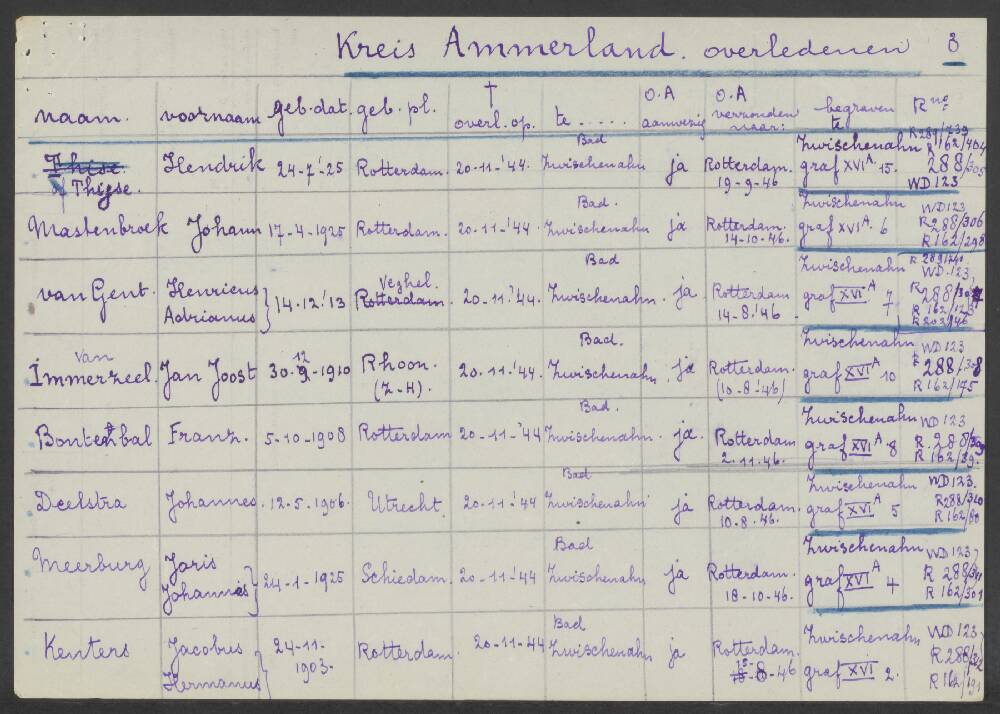 Kreis Ammerland. overledenen 3
naam. voornaam geb.dat. geb. pl. † overl. op. te ..... O.A aanwezig O.A verzonden naar: begraven te R no
Thise. Thijse. Hendrik 24-7-'25 Rotterdam. 20-11-'44. Bad Zwischenahn ja Rotterdam. 19-9-46 Zwischenahn graf XVI A 15. R 289/739 R 162/404 288/305 WD 123
Mastenbroek Johann 17-4-1925 Rotterdam. 20-11-'44. Bad. Zwischenahn ja Rotterdam. 14-10-46. Zwischenahn graf XVI A. 6 WD 123 R 288/306 R 162/298
van Gent. Henricus Adrianus } 14-12-'13 Veghel. Rotterdam. 20-11-'44. Bad Zwischenahn. ja Rotterdam 14-8-'46 Zwischenahn graf XVI A 7 WD. 123. R 288/307 R 162/123 R 203/46
van Immerzeel. Jan Joost 30-12-1910 Rhoon. (Z-H). 20-11-'44. Bad. Zwischenahn. ja Rotterdam. (10-8-'46) Zwischenahn graf XVI A 10 WD 123 R 288/308 R 162/175
Bontenbal Franz. 5-10-1908 Rotterdam 20-11-'44 Bad. Zwischenahn. ja. Rotterdam 2.11.46. Zwischenahn graf XVI A 8 WD 123 R. 288/309 R 162/39.
Deelstra Johannes. 12-5-1906. Utrecht. 20-11-'44 Bad Zwischenahn ja Rotterdam. 10-8-'46. Zwischenahn graf XVI A 5 WD 123. R 288/310 R 162/80
Meerburg Joris Johannes } 24-1-1925 Schiedam. 20-11-'44 Bad Zwischenahn ja Rotterdam. 18-10-46. Zwischenahn graf XVI A 4 WD 123 R 288/311 R 162/301
Kenters Jacobus Hermanus } 24-11-1903. Rotterdam. 20-11-44 Bad Zwischenahn ja Rotterdam. 15-8-46 Zwischenahn graf XVI 2. WD 123 R 288/312 R 162/191